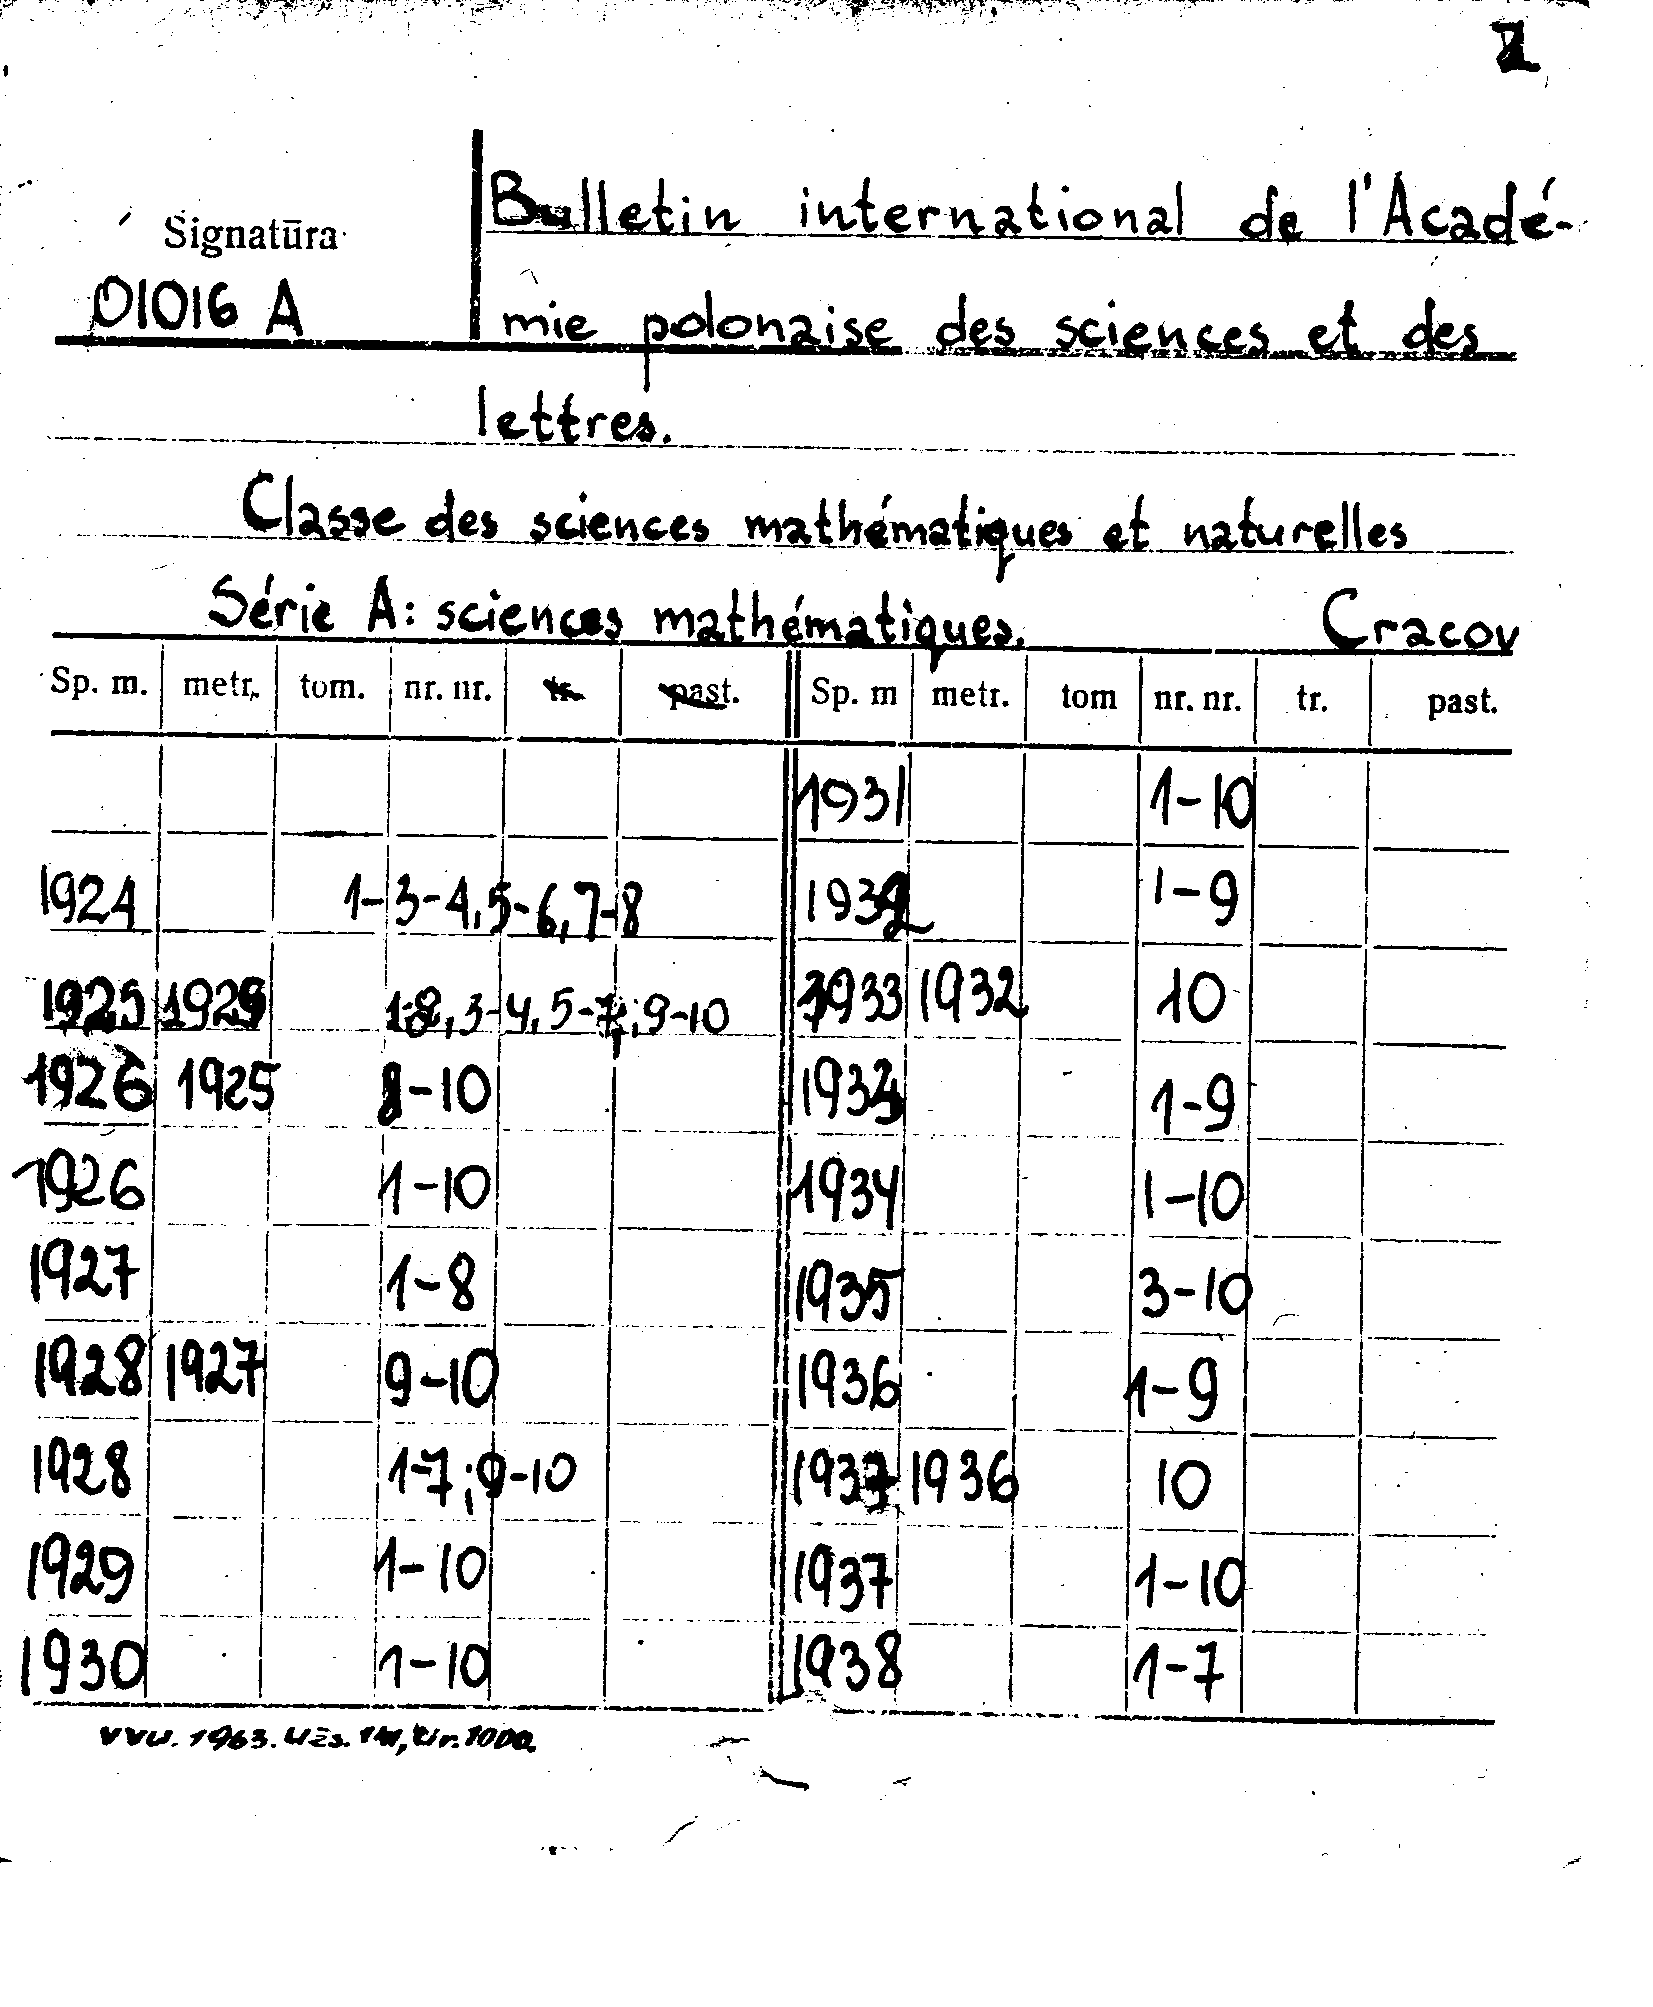 Signatūra
01016 A
Bulletin international de l'Acadé-
mie polonaise des sciences et des
lettres.
Classe des sciences mathématiques et naturelles
Série A: sciences mathématiques. Cracov
Sp. m. metr. tom. nr. nr. tr. past. Sp. m metr. tom nr. nr. tr. past.
1931 1-10
1924 1-3-4,5-6,7-8 1932 1-9
1925 3-4, 5-7; 9-10 1933 1932 10
1926 1925 8-10 1933 1-9
1926 1-10 1934 1-10
1927 1-8 1935 3-10
1928 1927 9-10 1936 1-9
1928 1-7; 9-10 1937 1936 10
1929 1-10 1937 1-10
1930 1-10 1938 1-7
VVU. 1963. Užs. tir. 1000.